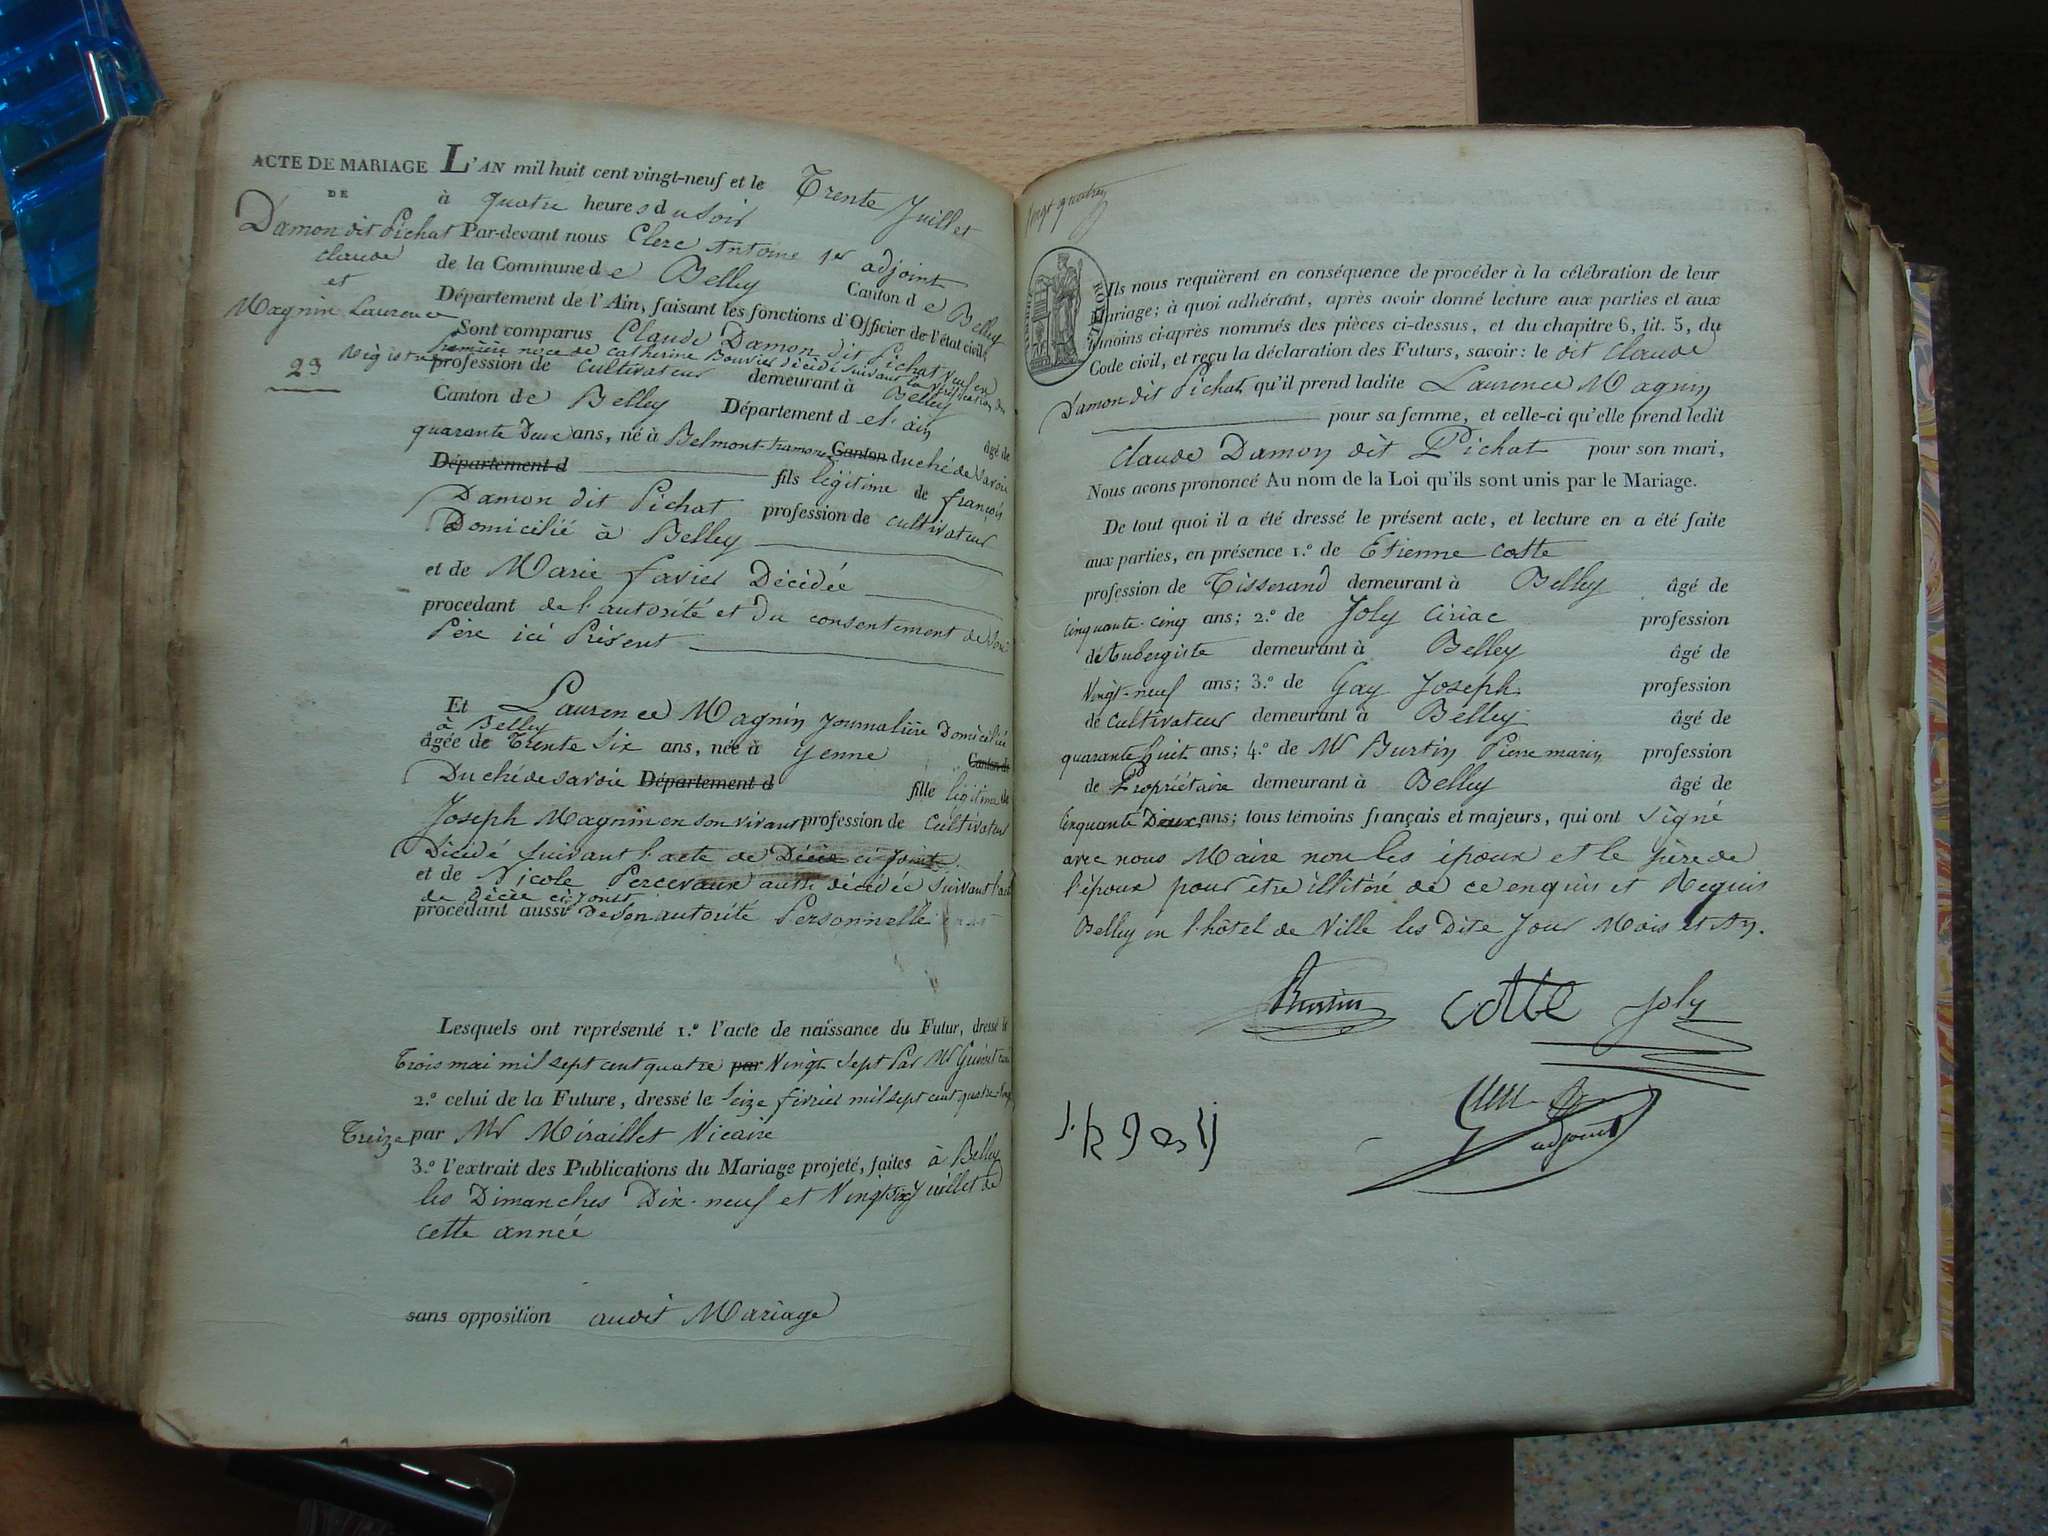 ACTE DE MARIAGE
DE
Damon dit Pichat
Claude
et
Magnin Laurence
23
L'AN mil huit cent vingt-neuf et le Trente Juillet
à quatre heures du Soir
Par-devant nous Clerc Antoine 1er adjoint
de la Commune de Belley Canton de Belley
Département de l'Ain, faisant les fonctions d'Officier de l'état civil,
Sont comparus Claude Damon dit Pichat veuf en
première noce de Catherine Bouvier décédé suivant la vérification du
Registre
profession de Cultivateur demeurant à Belley
Canton de Belley Département de l'ain âgé de
quarante Deux ans, né à Belmont-tramonet Canton duché de Savoie
Département d fils légitime de françois
Damon dit Pichat profession de Cultivateur
Domicilié à Belley
et de Marie favier Décédée
procedant de l'autorité et du consentement de Son
Père ici Présent
Et Laurence Magnin Journalière Domiciliée
à Belley
âgée de Trente Six ans, née à Yenne Canton de
Duché de Savoie Département d fille légitime de
Joseph Magnin en son vivant profession de Cultivateur
Décédé suivant l'acte de Décès ci joint
et de Nicole Percevaux aussi décédée suivant l'acte
de Décès ci-Joint
procédant aussi de Son autorité Personnelle
Lesquels ont représenté 1.º l'acte de naissance du Futur, dressé le
Trois mai mil sept cent quatre par Vingt Sept Par Mr
2.º celui de la Future, dressé le Seize février mil sept cent quatre-vingt
Treize par Mr Miraillet Vicaire
3.º l'extrait des Publications du Mariage projeté, faites à Belley
les Dimanches Dix-neuf et Vingt Six Juillet de
cette année
sans opposition audit Mariage
Vingt quatre
Ils nous requièrent en conséquence de procéder à la célébration de leur
Mariage; à quoi adhérant, après avoir donné lecture aux parties et aux
témoins ci-après nommés des pièces ci-dessus, et du chapitre 6, tit. 5, du
Code civil, et reçu la déclaration des Futurs, savoir: le dit Claude
Damon dit Pichat qu'il prend ladite Laurence Magnin
pour sa femme, et celle-ci qu'elle prend ledit
Claude Damon dit Pichat pour son mari,
Nous avons prononcé Au nom de la Loi qu'ils sont unis par le Mariage.
De tout quoi il a été dressé le présent acte, et lecture en a été faite
aux parties, en présence 1.º de Etienne Cotte
profession de Tisserand demeurant à Belley âgé de
Cinquante-cinq ans; 2.º de Joly Ciriac profession
de Aubergiste demeurant à Belley âgé de
Vingt-neuf ans; 3.º de Gay Joseph profession
de Cultivateur demeurant à Belley âgé de
quarante huit ans; 4.º de Mr Burtin Pierre marin profession
de Propriétaire demeurant à Belley âgé de
Cinquante Deux ans; tous témoins français et majeurs, qui ont Signé
avec nous Maire non les époux et le père de
l'époux pour être illitéré de ce enquis et Requis
Belley en l'hôtel de Ville les Dits Jour Mois et An.
Burtin Cotte Joly
adjoint